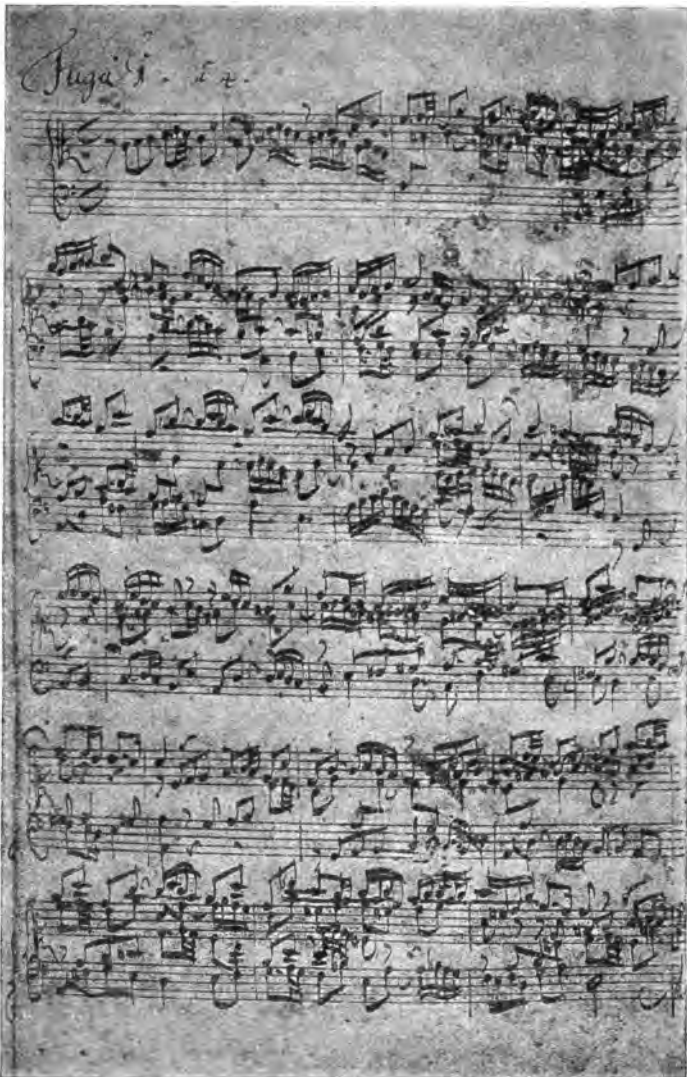 Fuga 1. à 4.